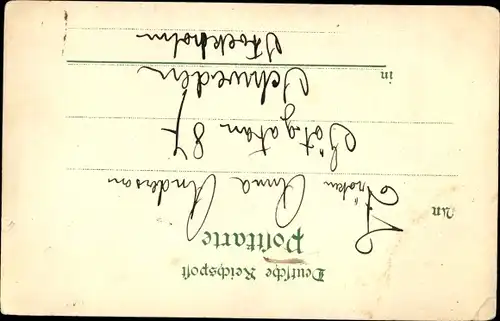 Deutsche Reichspost
Postkarte
An Fröken Anna Anderson
Götgatan 87
Schweden
in Stockholm